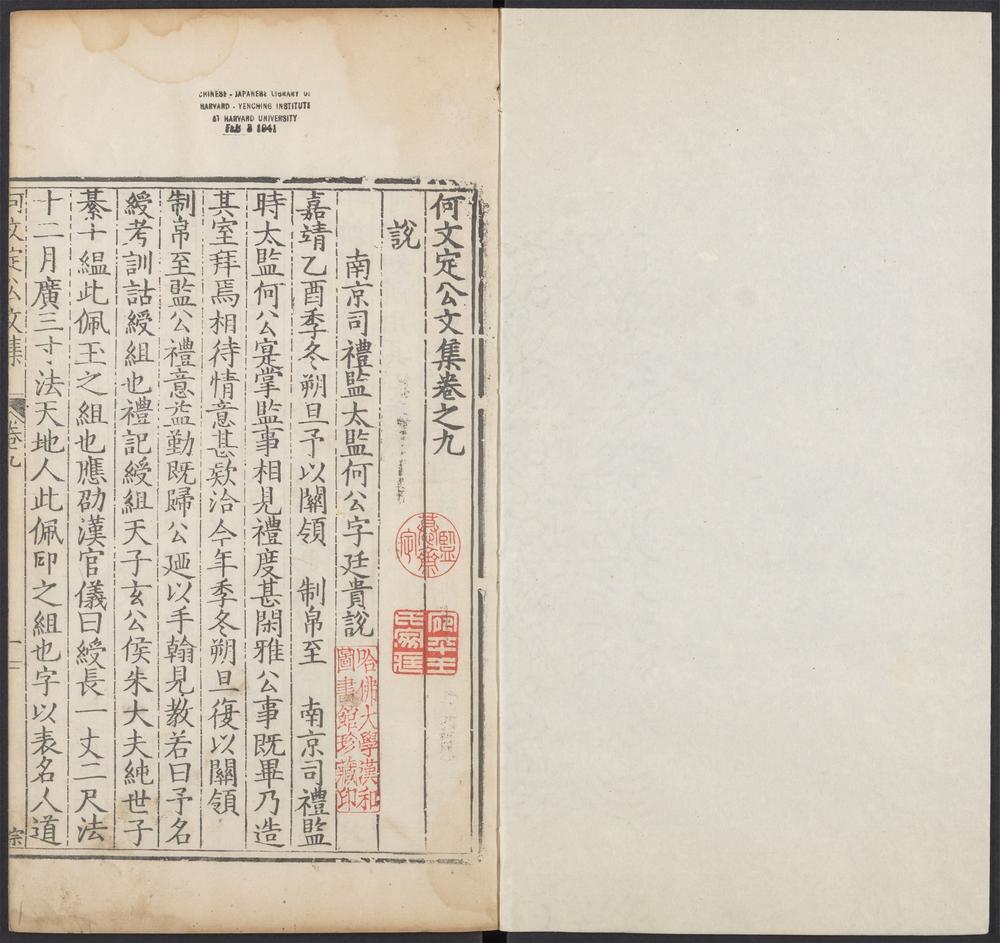 CHINESE - JAPANESE LIBRARY OF
HARVARD - YENCHING INSTITUTE
AT HARVARD UNIVERSITY
FEB 3 1941
何文定公文集卷之九
說
南京司禮監太監何公字廷貴說
嘉靖乙酉季冬朔旦予以關領 制帛至 南京司禮監
時太監何公寔掌監事相見禮度甚閑雅公事既畢乃造
其室拜焉相待情意甚欵洽今年季冬朔旦復以關領
制帛至監公禮意益勤既歸公廼以手翰見教若曰予名
綬考訓詁綬組也禮記綬組天子玄公侯朱大夫純世子
綦士縕此佩玉之組也應劭漢官儀曰綬長一丈二尺法
十二月廣三寸法天地人此佩印之組也字以表名人道
何文定公文集 卷九 一
宗
哈佛大學漢和
圖書館珍藏印